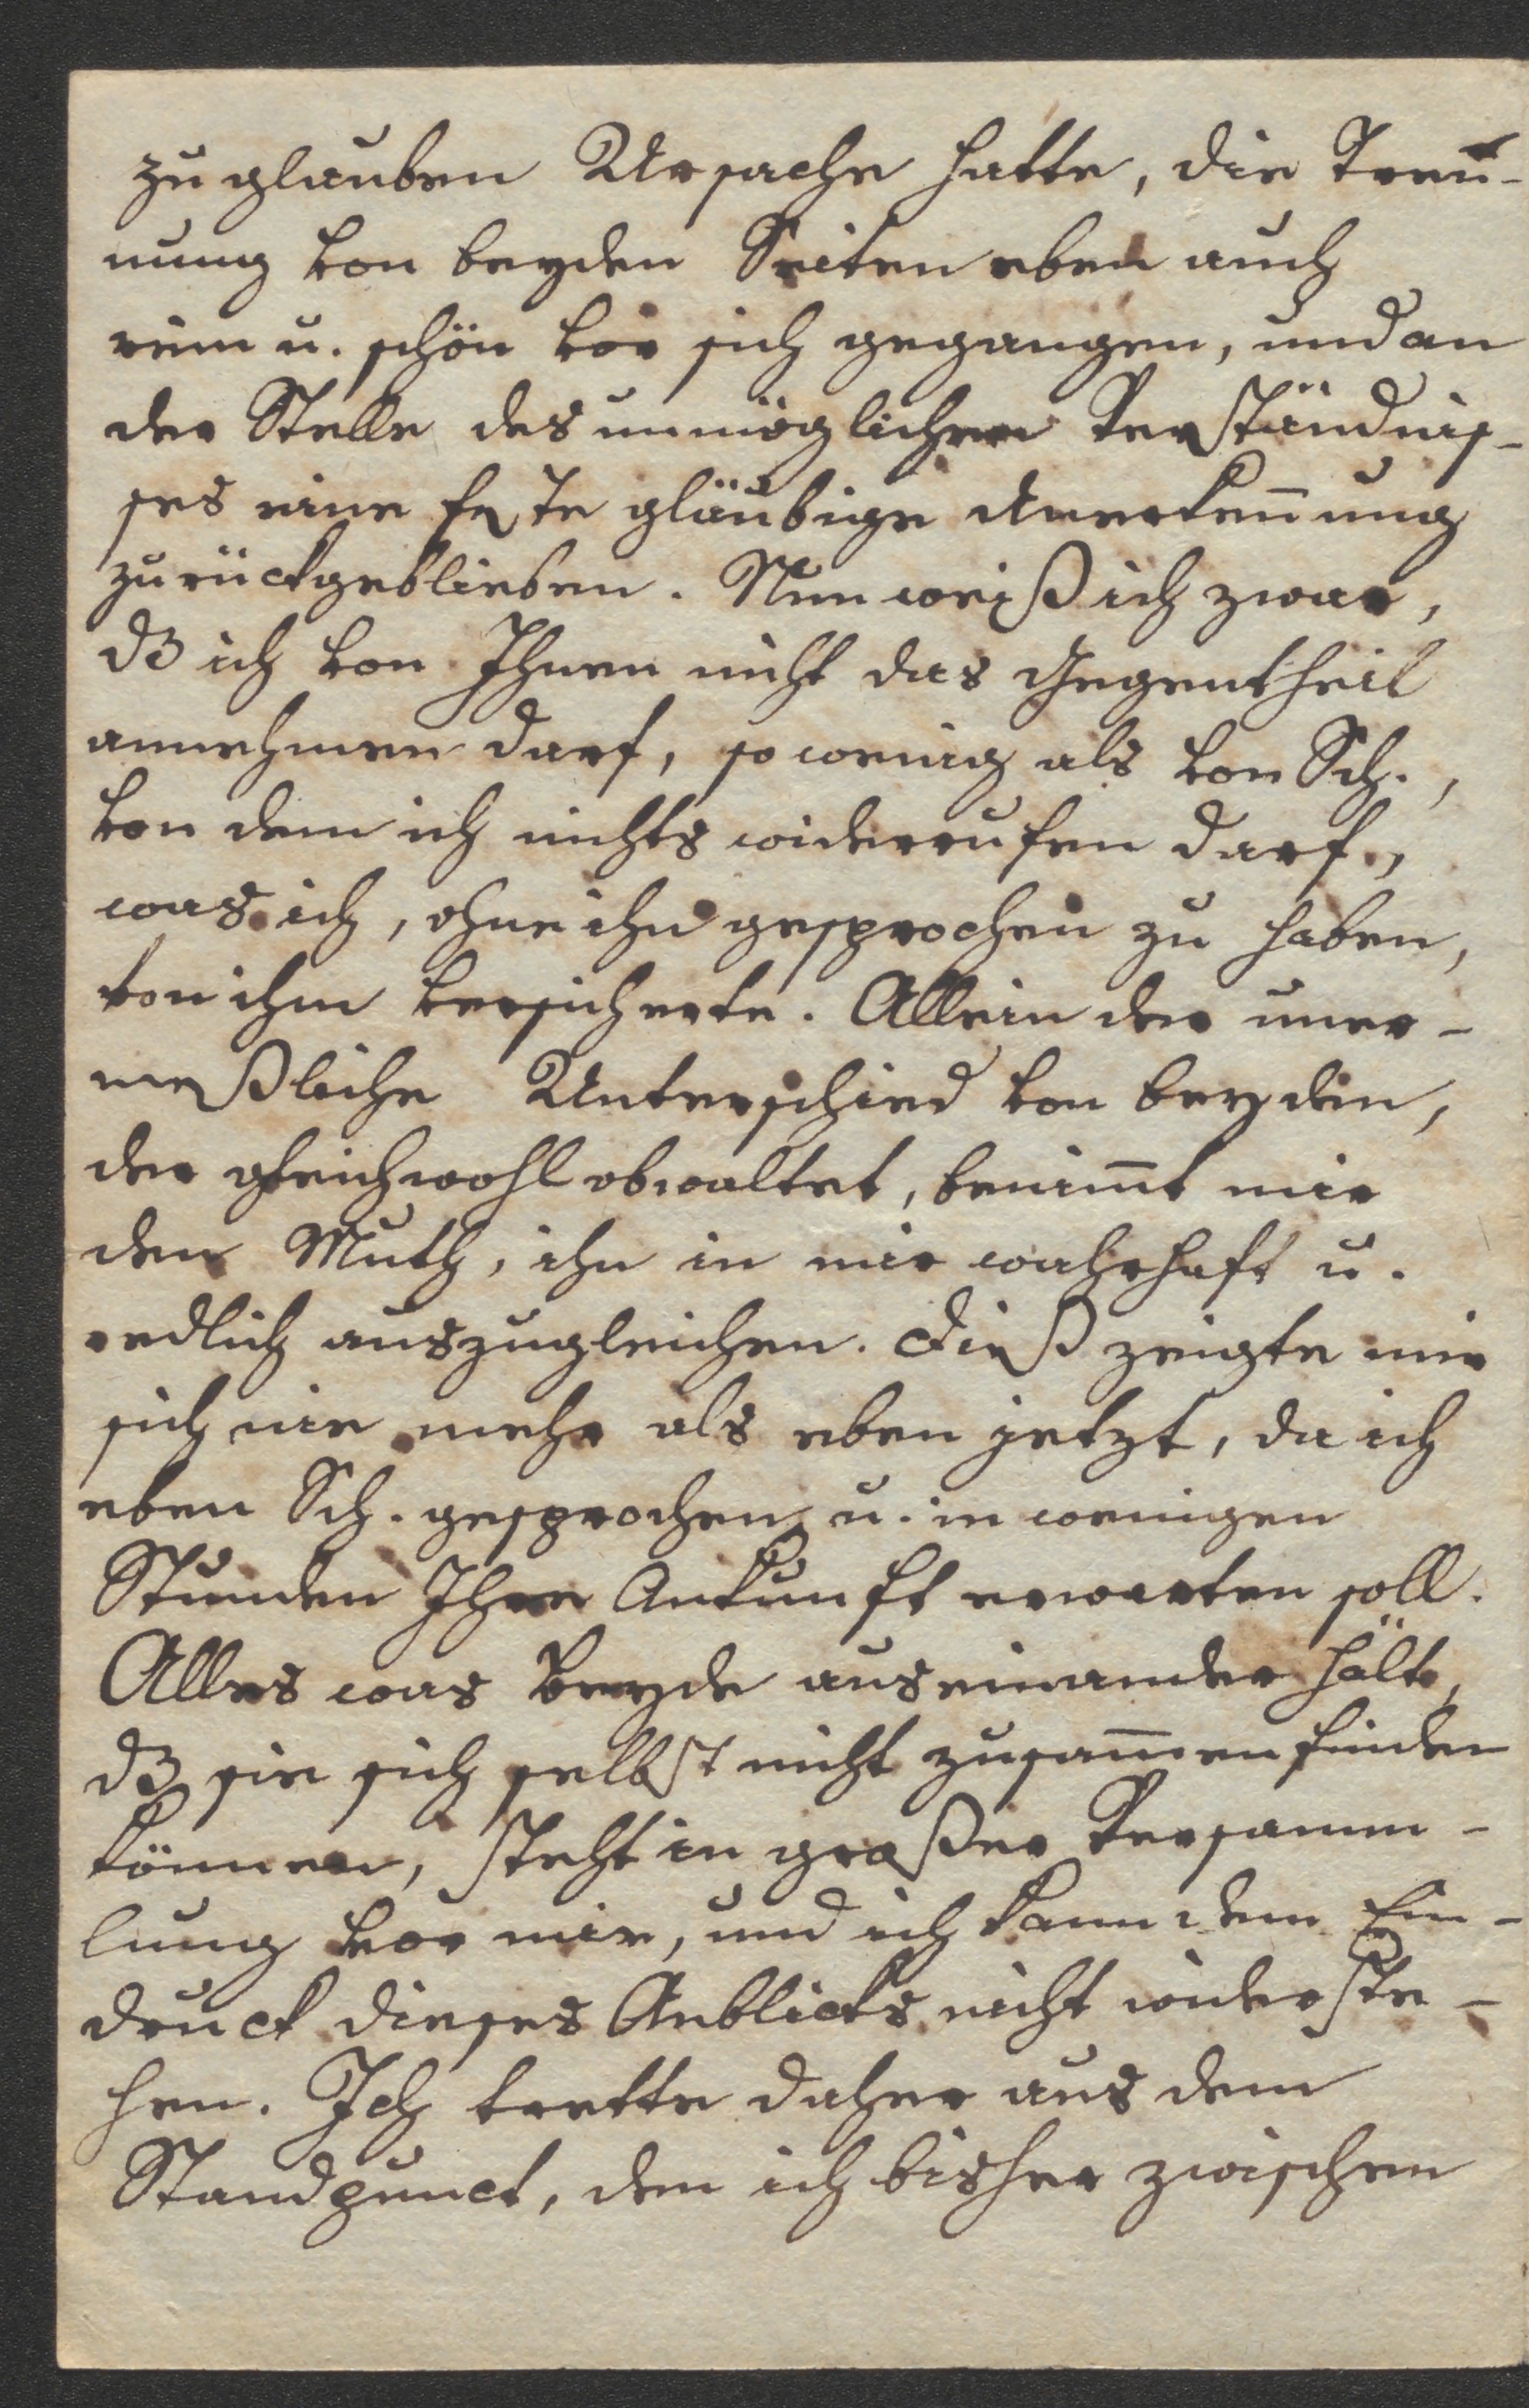 zu glauben Ursache hatte, die Tren̄-
nung von beyden Seiten eben auch
rein u. schön vor sich gegangen, und an
der Stelle des unmöglichen Verständnis-
ses eine feste gläubige Anerken̄ung
zurückgeblieben. Nun weiß ich zwar,
dß ich von Ihnen nicht das Gegentheil
annehmen darf, so wenig als von Sch.,
von dem ich nichts widerrufen darf,
was ich, ohne ihn gesprochen zu haben,
von ihm versicherte. Allein der uner-
meßliche Unterschied von beyden,
der gleichwohl obwaltet, benim̄t mir
den Muth, ihn in mir wahrhaft u.
redlich auszugleichen. Dieß zeigte mir
sich nie mehr als eben jetzt, da ich
eben Sch. gesprochen, u. in wenigen
Stunden Ihre Ankunft erwarten soll.
Alles was Beyde auseinander hält,
dß sie sich selbst nicht zusam̄en finden
können, steht in großer Versamm-
lung vor mir, und ich kann dem Ein-
druck dieses Anblicks nicht widerste-
hen. Ich trette daher aus dem
Standpunct, den ich bisher zwischen